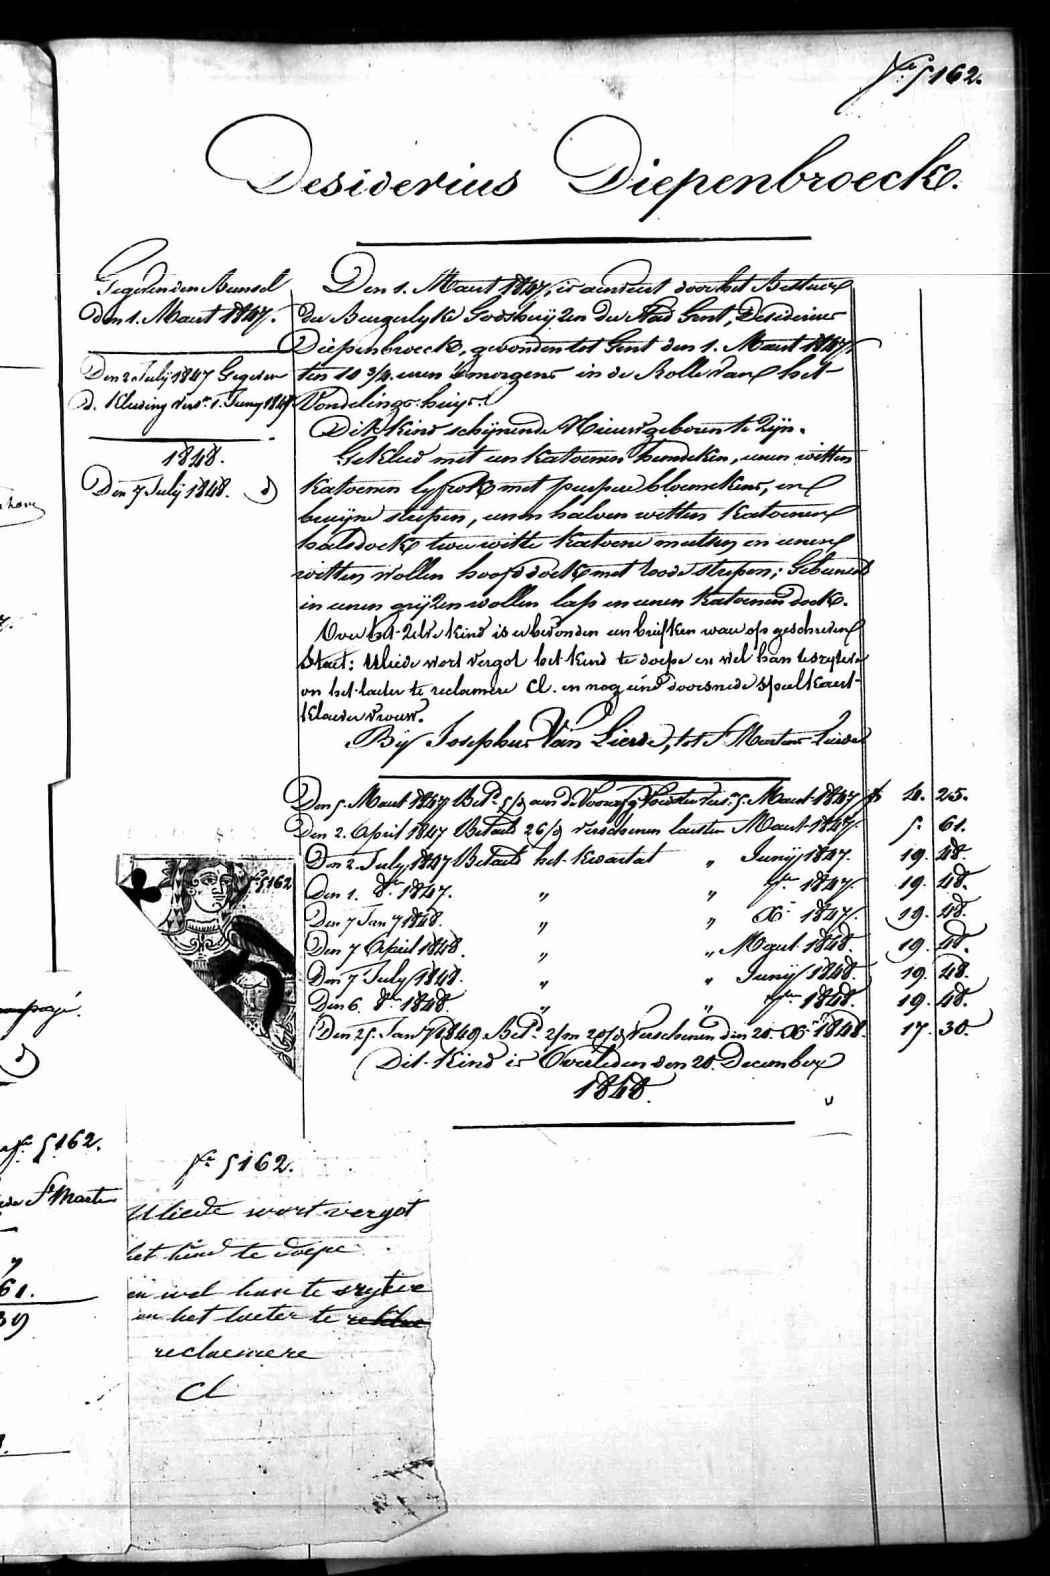 N.º 5162.
Desiderius Diepenbroeck.
Gegeven den Bunsel
den 1. Maart 1847.
Den 2 July 1847 Gegeven
d. Kleeding vers.n 1. Juny 1847
1848.
Den 7 July 1848. d)
Den 1. Maart 1847, is aenveirt door het Bestuer
der Burgerlyke Godshuyzen der Stad Gent, Desiderius
Diepenbroeck, gevonden tot Gent den 1. Maart 1847,
ten 10 3/4 uren 's morgens in de Rolle van het
Vondelings-huys.
Dit kind schynende Nieuwgeboren te zyn.
Gekleed met een katoenen hemdeken, eenen witten
katoenen lyfrok met purpere bloemekens, en
bruyne strepen, eenen halven witten katoenen
halsdoek, twee witte katoene mutsen en eenen
witten wollen hoofddoek met roode strepen; Gebunseld
in eenen gryzen wollen lap en eenen katoenen doek.
Over het zelve kind is er bevonden een briefken waer op geschreven
Staet: Uliede wort vergot het kind te doepe en wel han te
on het laeter te reclamere Cl. en nog eene doorsnede speelkaert
klaever vrouw.
By Josephus Van Lierde, tot St Martens Lierde
Den 5. Maart 1847 Bet.d 5/d aen de Voorzg Voedster vers.n 5. Maart 1847 fs 4. 25.
Den 2. April 1847 Betaeld 26/d verschenen laesten Maart 1847. 5. 61.
Den 2. July 1847 Betaeld het kwartael " Juny 1847. 19. 48.
Den 1. 8.er 1847. " " 7.ber 1847. 19. 48.
Den 7 Jan.y 1848. " " X.r 1847. 19. 48.
Den 7 April 1848. " " Maart 1848. 19. 48.
Den 7 July 1848. " " Juny 1848. 19. 48.
Den 6. 8.er 1848. " " 7.ber 1848. 19. 48.
Den 25. Jan.y 1849 Bet.d 2/m 20/d Verschenen den 20. X.r 1848. 17. 30.
Dit kind is Overleden den 20. December
1848.
N.º 5162
N.º 5162.
Uliede wort vergot
het kind te doepe
en wel han te
on het laeter te
reclaemere
Cl
5162.
St Marte
61.
39